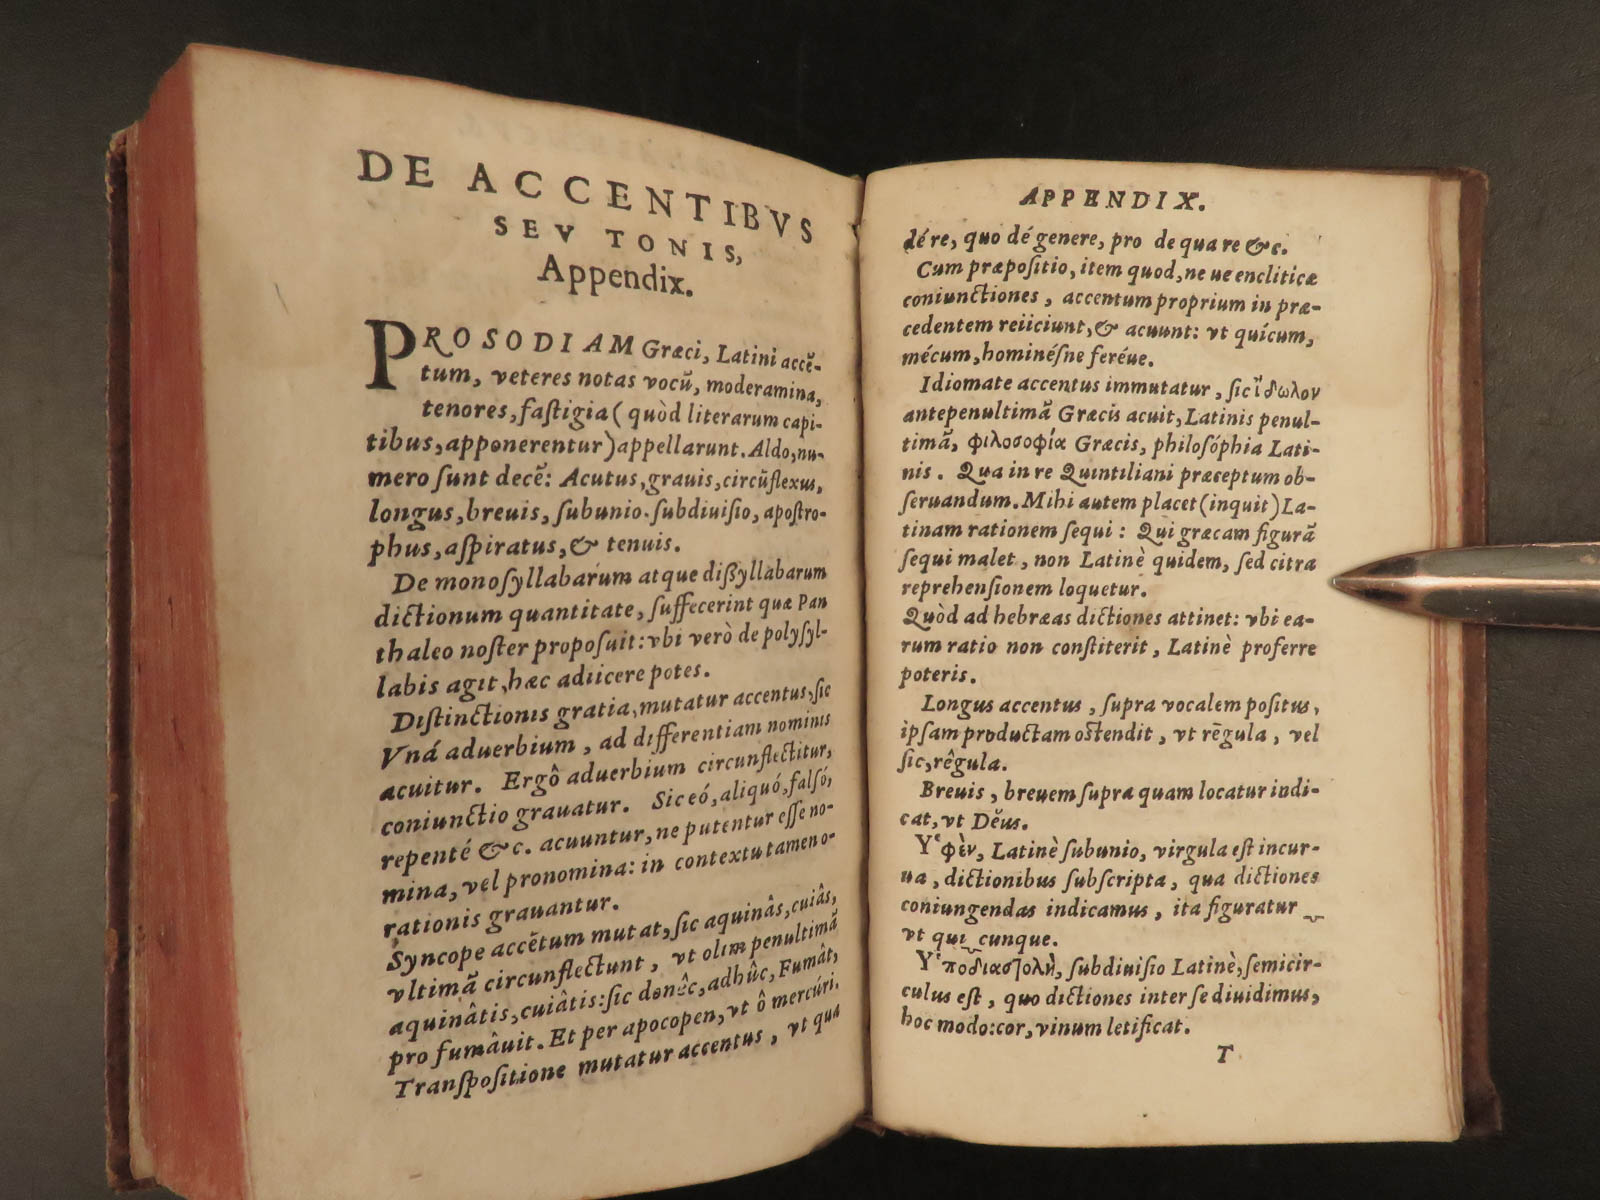 DE ACCENTIBVS
SEV TONIS,
Appendix.
PROSODIAM Græci, Latini accẽ-
tum, veteres notas vocũ, moderamina,
tenores, faſtigia ( quòd literarum capi-
tibus, apponerentur) appellarunt. Aldo, nu-
mero ſunt decẽ: Acutus, grauis, circũflexus,
longus, breuis, ſubunio. ſubdiuiſio, apoſtro-
phus, aſpiratus, & tenuis.
De monoſyllabarum atque diſſyllabarum
dictionum quantitate, ſuffecerint quæ Pan
thaleo noſter propoſuit: vbi verò de polyſyl-
labis agit, hæc adiicere potes.
Diſtinctionis gratia, mutatur accentus, ſic
Vná aduerbium, ad differentiam nominis
acuitur. Ergô aduerbium circunflectitur,
coniunctio grauatur. Sic eó, aliquó, falſó,
repenté &c. acuuntur, ne putentur eſſe no-
mina, vel pronomina: in contextu tamen o-
rationis grauantur.
Syncope accẽtum mutat, ſic aquinâs, cuiâs,
vltimã circunflectunt, vt olim penultimã
aquinâtis, cuiâtis: ſic donêc, adhûc, Fumât,
pro fumâuit. Et per apocopen, vt ô mercúri.
Tranſpoſitione mutatur accentus, vt qua
APPENDIX.
dé re, quo dé genere, pro de qua re &c.
Cum præpoſitio, item quod, ne ue encliticæ
coniunctiones, accentum proprium in præ-
cedentem reiiciunt, & acuunt: vt quícum,
mécum, hominéſne feréue.
Idiomate accentus immutatur, ſic ἴδωλον
antepenultimã Græcis acuit, Latinis penul-
timã, φιλοσοφία Græcis, philoſóphia Lati-
nis. Qua in re Quintiliani præceptum ob-
ſeruandum. Mihi autem placet (inquit) La-
tinam rationem ſequi: Qui græcam figurã
ſequi malet, non Latinè quidem, ſed citra
reprehenſionem loquetur.
Quòd ad hebræas dictiones attinet: vbi ea-
rum ratio non conſtiterit, Latinè proferre
poteris.
Longus accentus, ſupra vocalem poſitus,
ipſam productam oſtendit, vt rēgula, vel
ſic, rêgula.
Breuis, breuem ſupra quam locatur indi-
cat, vt Dĕus.
Υ῾φὲν, Latinè ſubunio, virgula eſt incur-
ua, dictionibus ſubſcripta, qua dictiones
coniungendas indicamus, ita figuratur ‿
vt qui‿cunque.
Υ῾ποδιαστολὴ, ſubdiuiſio Latinè, ſemicir-
culus eſt, quo dictiones inter ſe diuidimus,
hoc modo: cor, vinum letificat.
T